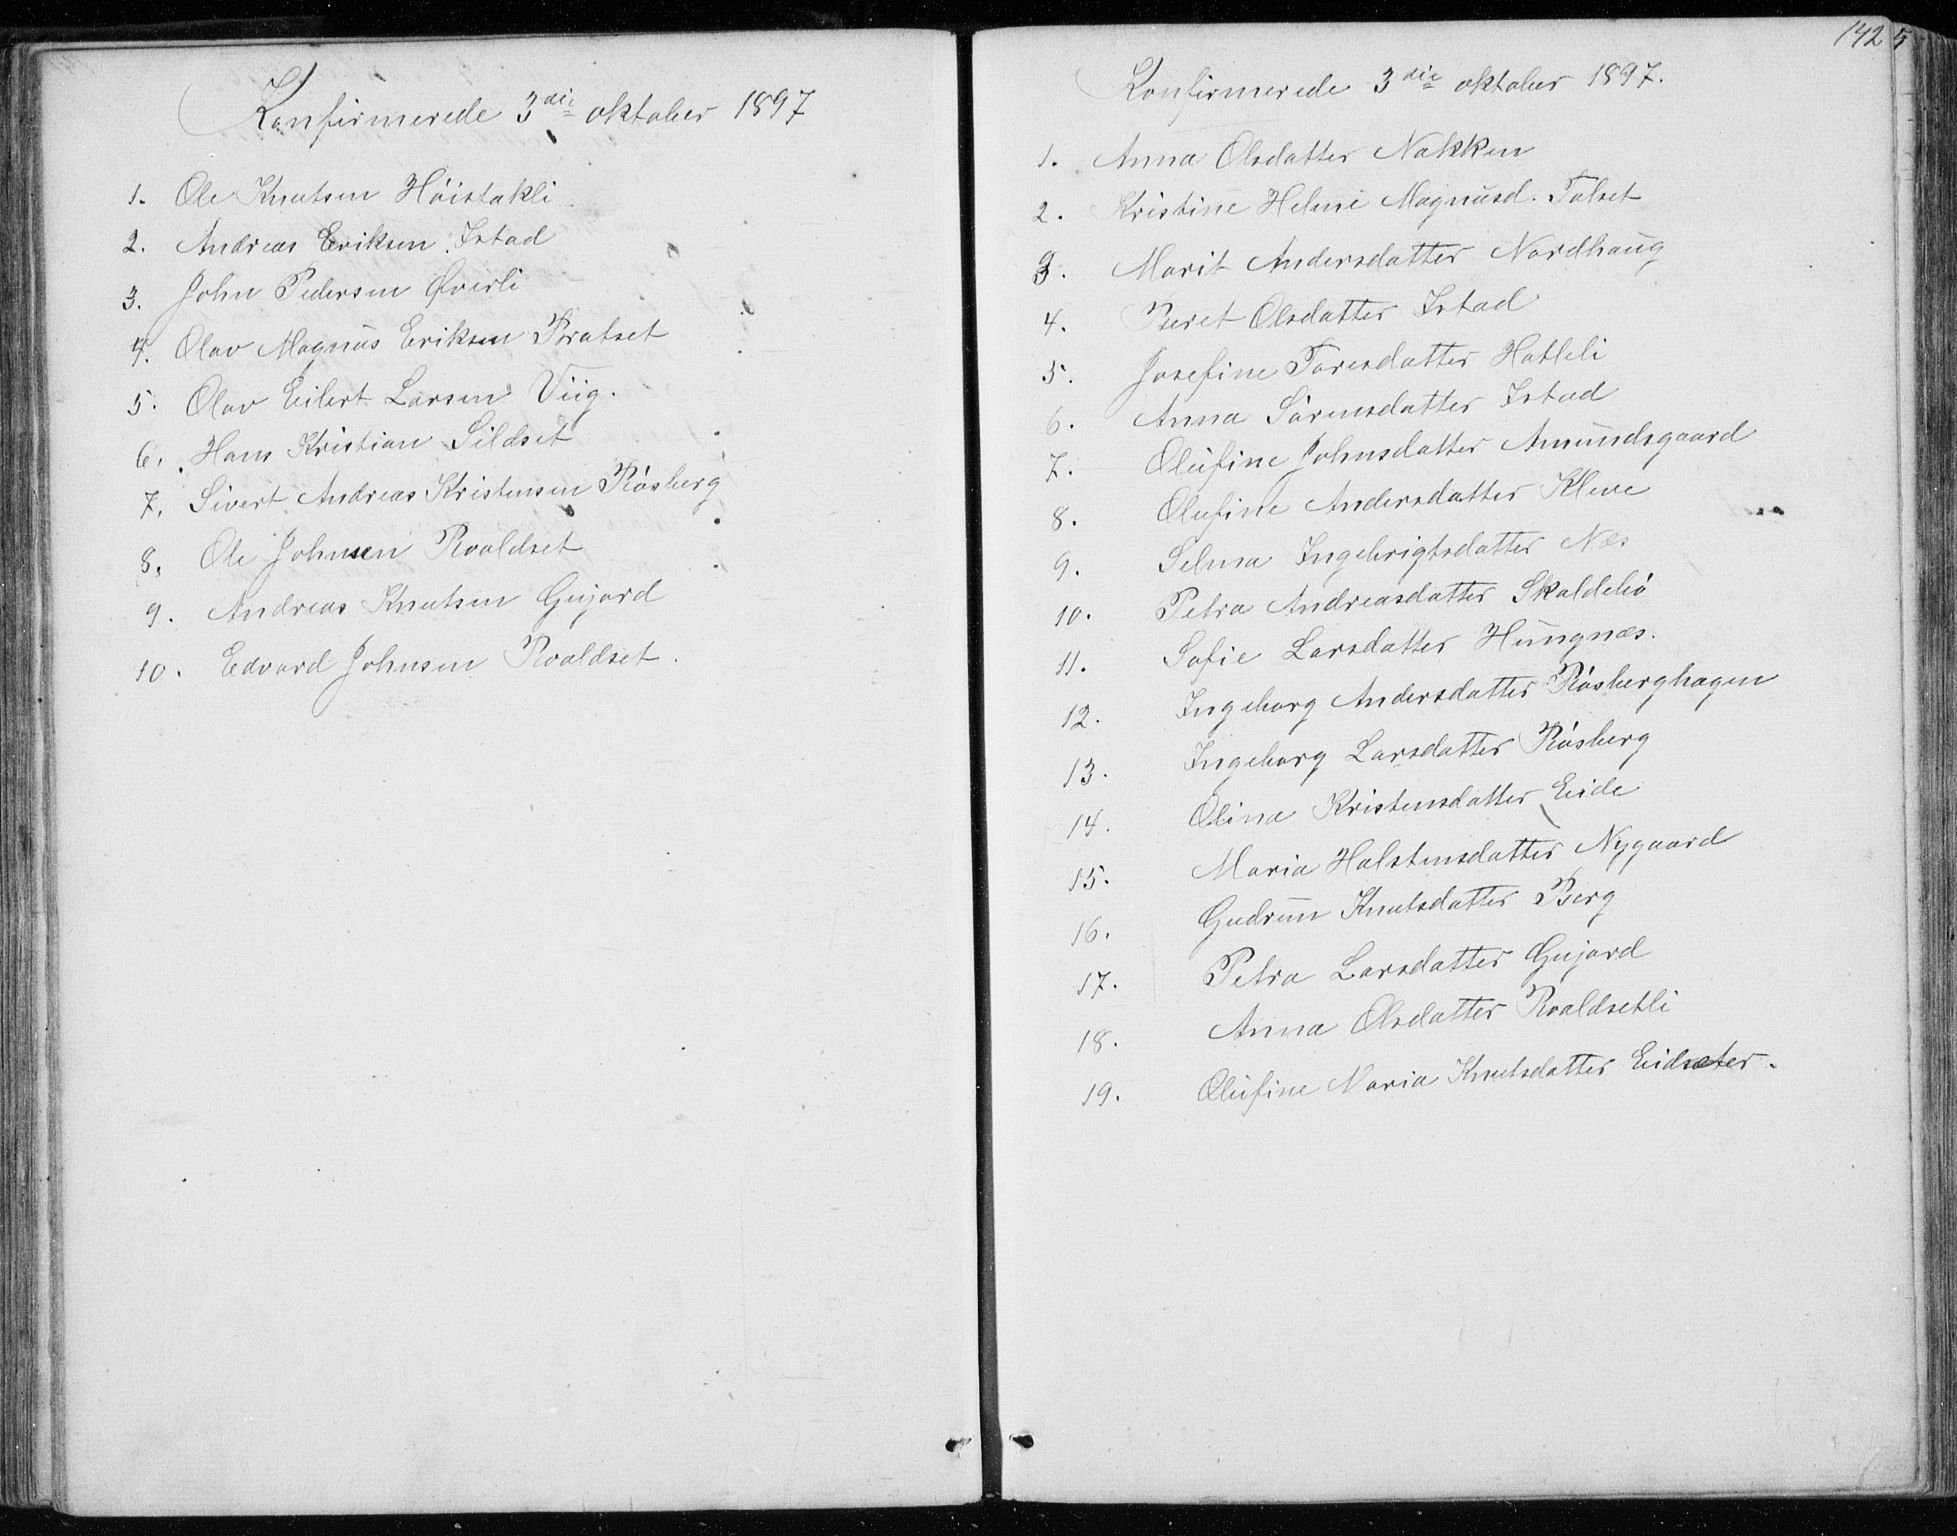 Konfirmerede 3die oktober 1897
1. Ole Knutsen Höistakli
2. Andreas Eriksen Istad
3. John Pedersen Øverli
4. Olav Magnus Eriksen Bratset
5. Olav Eilert Larsen Viig.
6. Hans Kristian Sildset
7. Sivert Andreas Kristensen Rösberg
8. Ole Johnsen Roaldset
9. Andreas Knutsen Gujord
10. Edvard Johnsen Roaldset.
142
Konfirmerede 3die oktober 1897.
1. Anna Olsdatter Nakken
2. Kristine Helmi Magnusd. Talset
3. Marit Andersdatter Nordhaug
4. Beret Olsdatter Istad
5. Josefine Toresdatter Hatleli
6. Anna Sörensdatter Istad
7. Olufine Johnsdatter Amundsgaard
8. Olufine Andersdatter Kleve
9. Selma Ingebrigtsdatter Næs
10. Petra Andreasdatter Skaldebö
11. Sofie Larsdatter Hungnæs.
12. Ingeborg Andersdatter Rösberghagen
13. Ingeborg Larsdatter Rösberg
14. Olina Kristensdatter Eide
15. Maria Halstensdatter Nygaard
16. Gudrun Knutsdatter Berg
17. Petra Larsdatter Gujord
18. Anna Olsdatter Roaldsetli
19. Olufine Maria Knutsdatter Eidsæter.